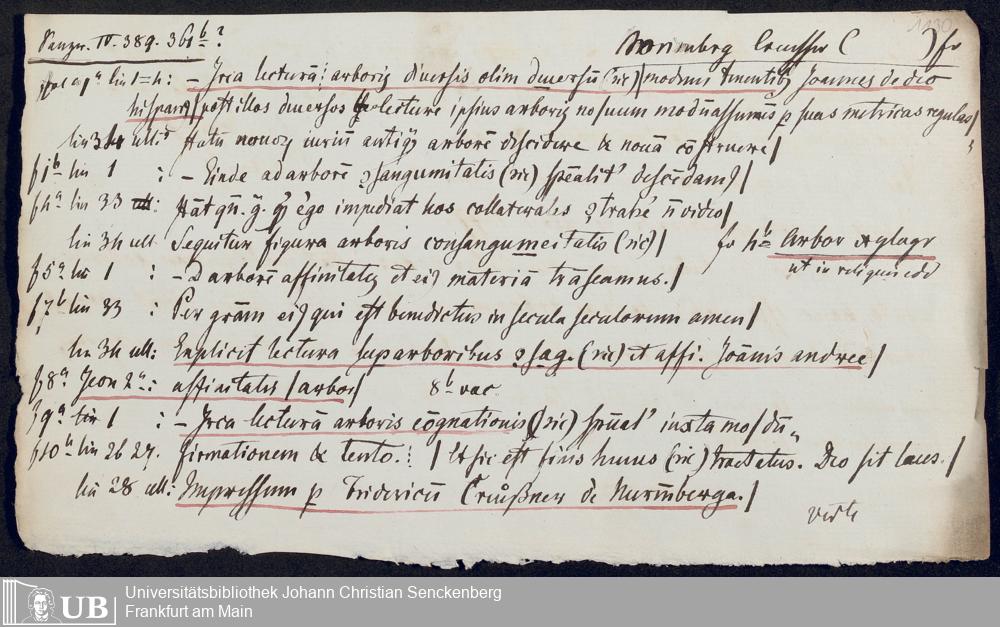 Panzer. IV. 389. 361b?
1130
Nurimberg Creussner ( ) fo
vac a 1a lin 1=4: – Irca lecturā arboris diversis olim diversū (sic) | modum tenentibꝫ Joannes de deo
hispan9 | post illos diversos lecture ipsius arboris nosuum mod̄nassumūs p suas metricas regulas |
lin 34 ult: Statū novoꝝ iurium antiqꝫ arborē descidere & nouā cōstruere |
f 1b lin 1 : – Einde ad arborē ꝯsanguinitatis (sic) spēalit' descēdam9 |
f 4a lin 33 : Stāt qn̄. q̄. ego impediat hos collaterales ꝯtrahē n̄ video |
lin 34 ult Sequitur figura arboris consangumeitatis (sic) | fo 4b Arbor
ut in reliquis edd
f 5a lin 1 : – D arborē affinitatis et ei9 materiā trāseamus. |
f 7b lin 33 : Per grām ei9 qui est benedictus in secula seculorum amen |
lin 34 ult: Explicit lectura sup arboribus ꝯsāg. (sic) et affi. Joānis andree |
f 8a Icon 2a: affinitatis | arbor | 8b vac.
f 9a lin 1 : – Irca lecturā arboris cōgnationis (sic) spūal' iuxta modū
f 10b lin 26 27. firmationem & tento. : | Et sic est finis humus (sic) tractatus. Deo sit laus. |
lin 28 ult: Impressum p Fridericū Creůßner de Nurmberga. |
verte
Universitätsbibliothek Johann Christian Senckenberg
UB Frankfurt am Main